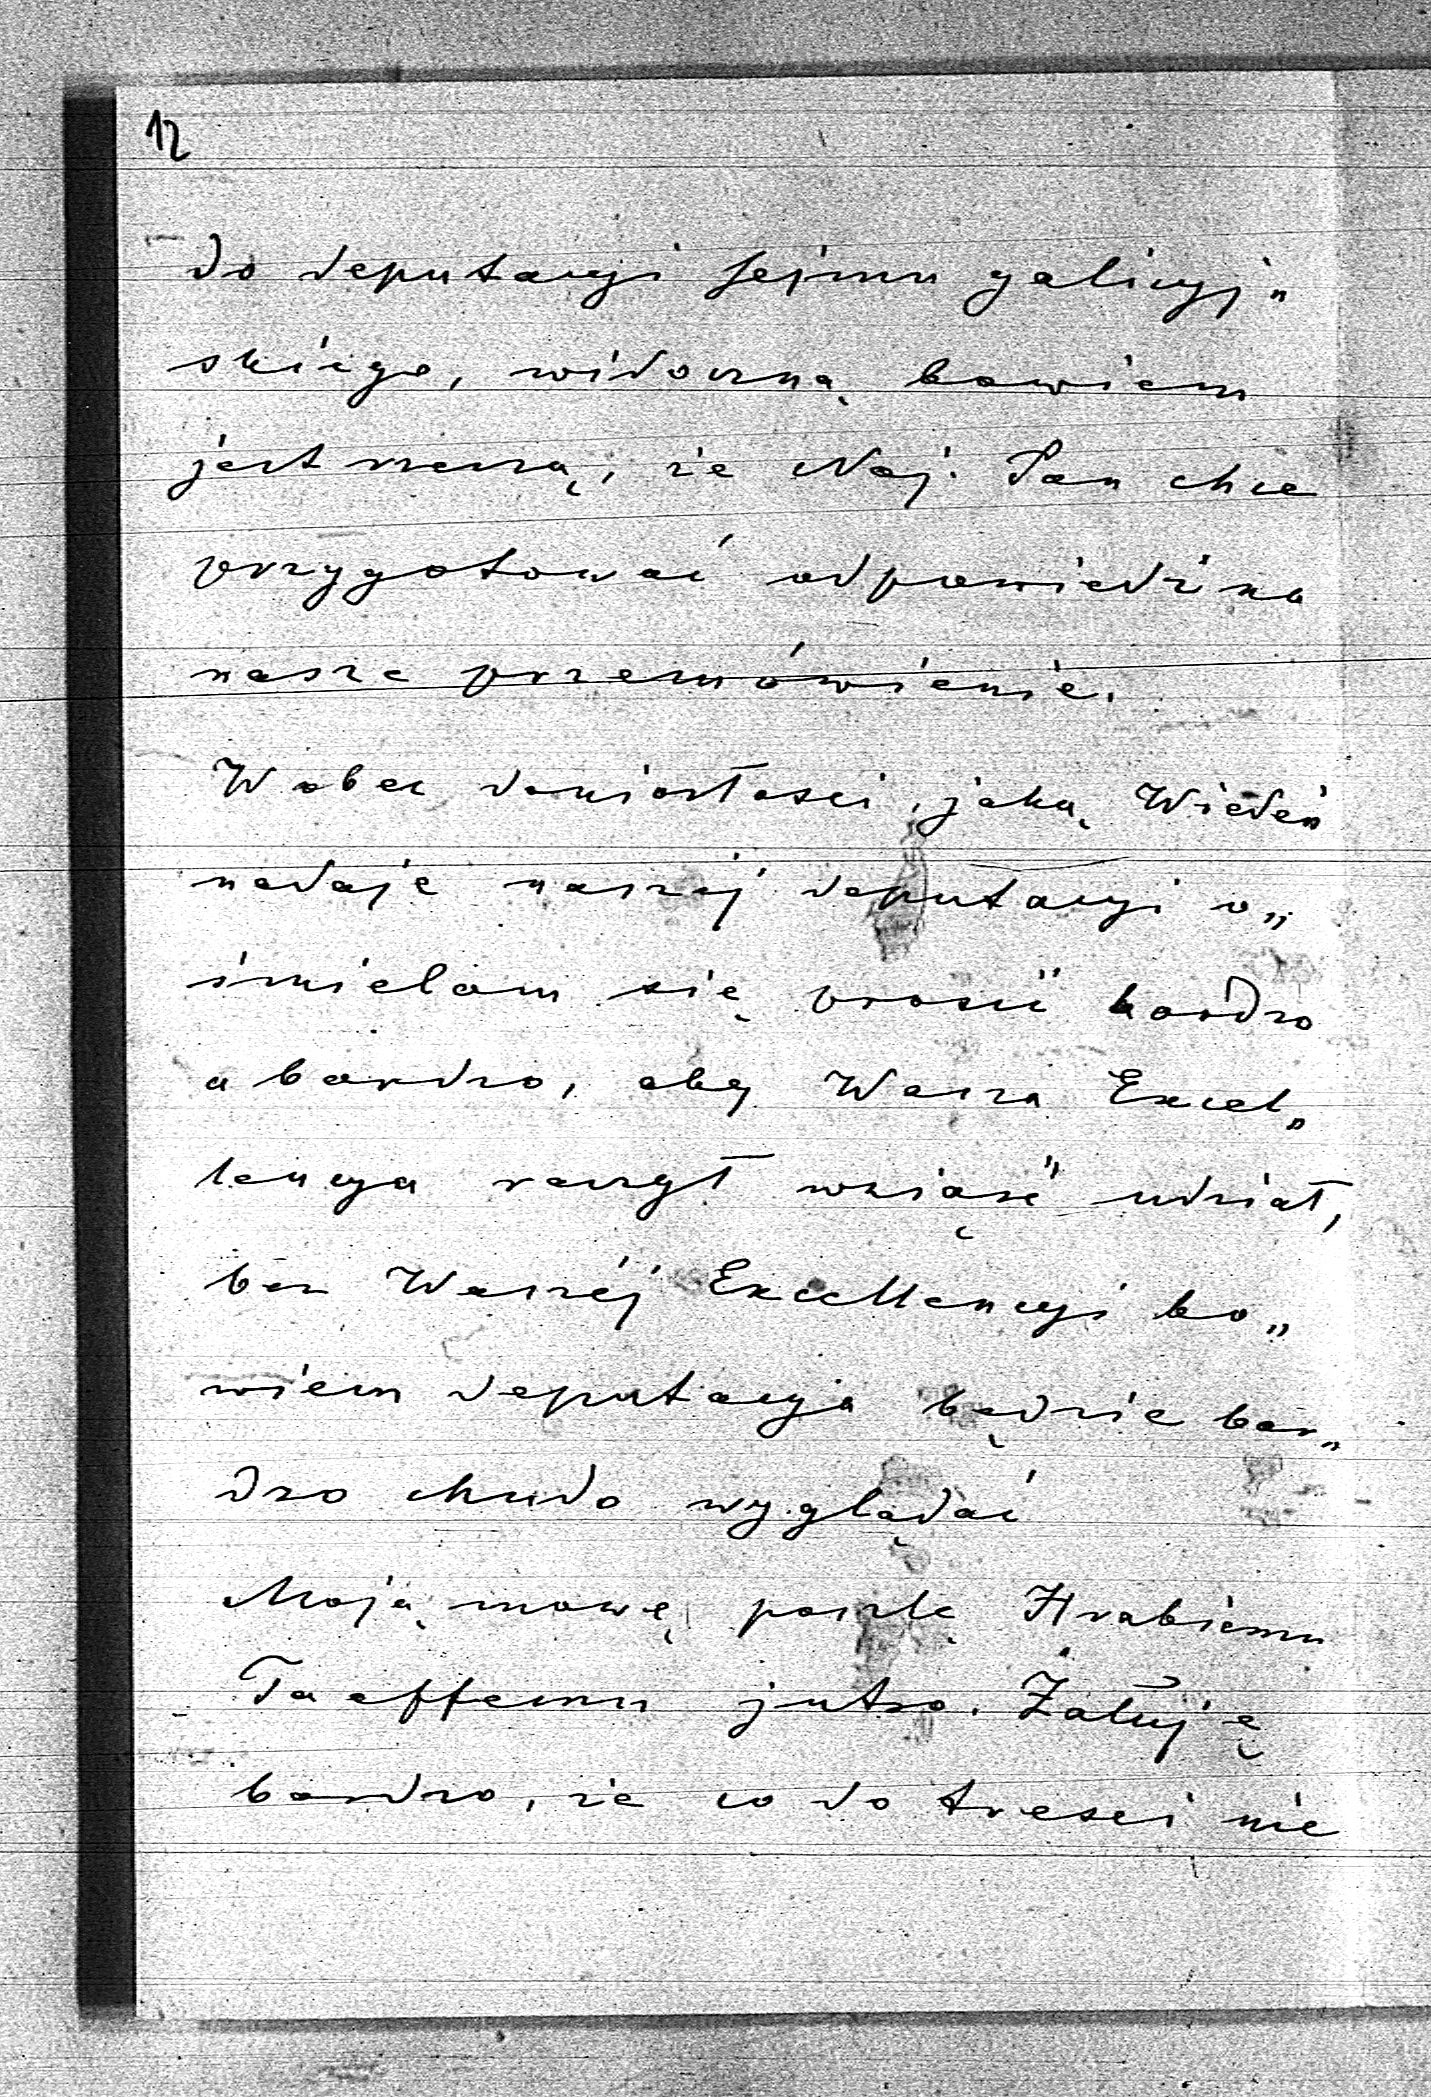 12
do deputacyi Sejmu galicyj„
skiego, widoczną bowiem
jest rzeczą, że Naj. Pan chce
przygotować odpowiedź na
nasze przemówienie.
Wobec doniosłości, jaką Wiedeń
nadaje naszej deputacyi o„
śmielam się prosić bardzo
a bardzo, aby Wasza Excel„
lencya raczył wziąść udział,
bez Waszéj Excellencyi bo„
wiem deputacya będzie bar„
dzo chudo wyglądać
Moją mowę poszlę Hrabiemu
Taaffemu jutro. Żałuję
bardzo, że co do treści nie